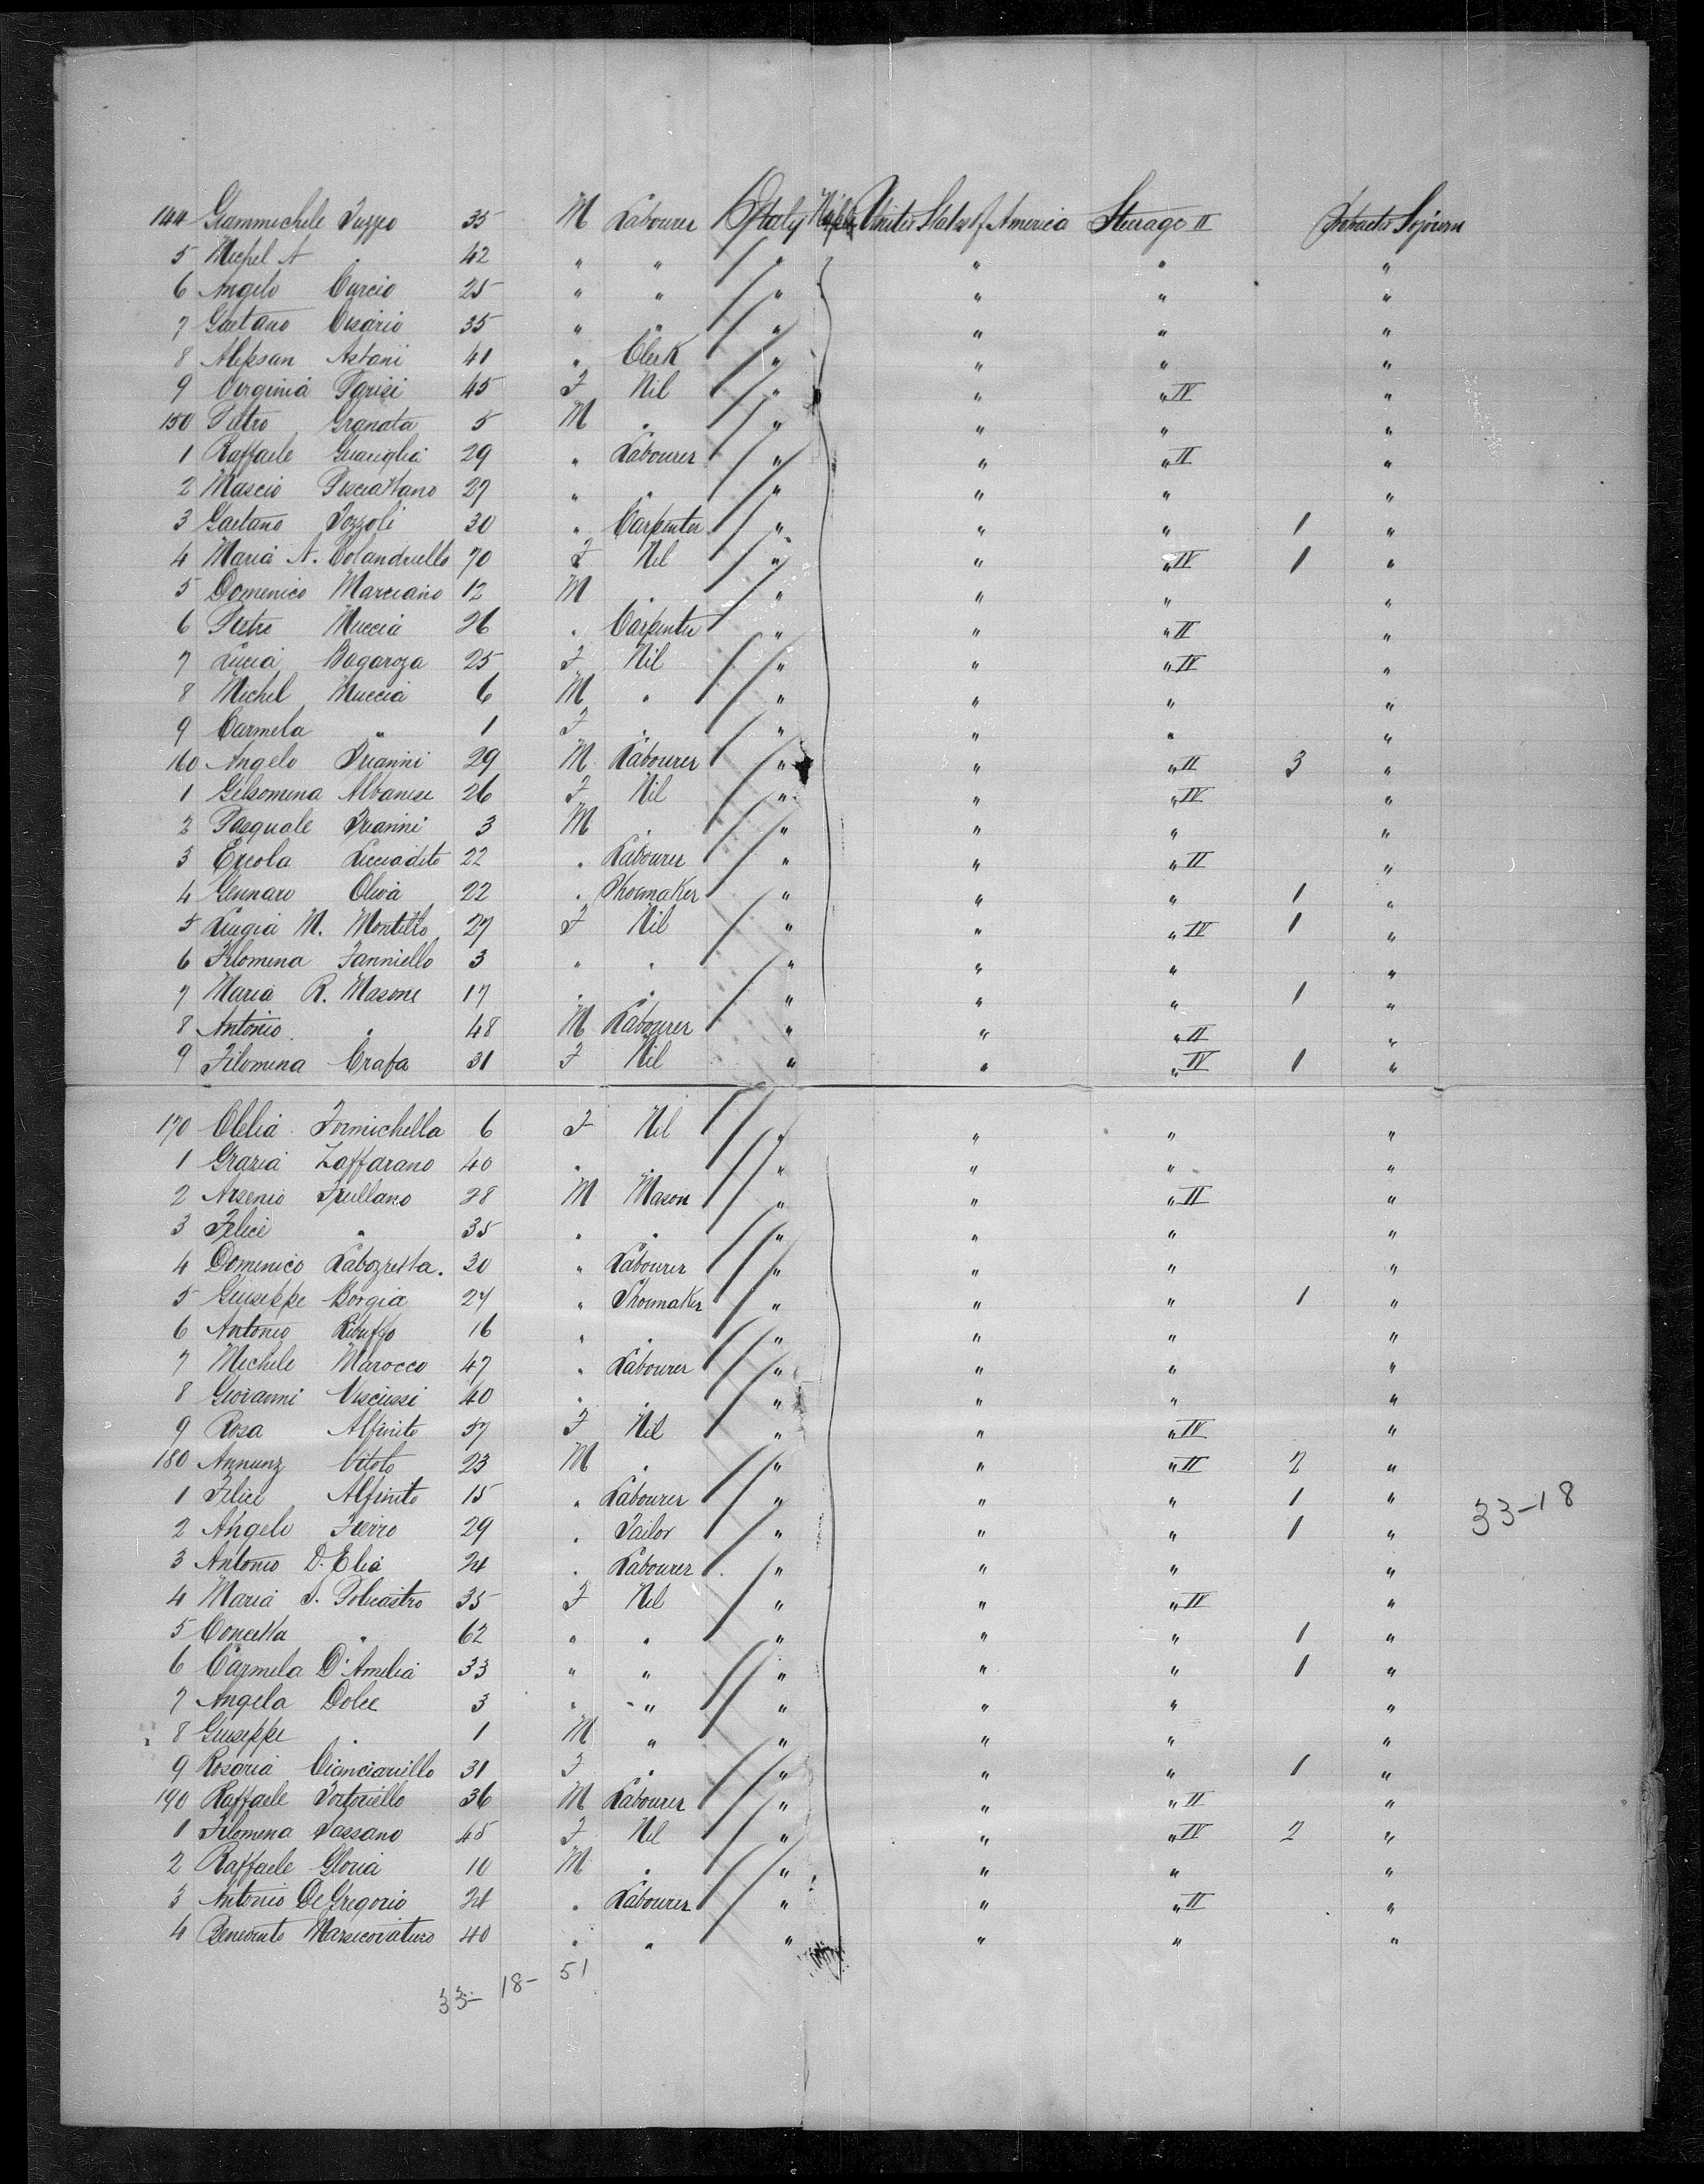 144 Giammichele Tuzzo 35 M Labourer Italy Naples United States of America Steerage II Protracted Sojourn
5 Michel A " 42 " " " " " "
6 Angelo Curcio 25 " " " " " "
7 Gaetano Cesario 35 " " " " " "
8 Astoni 41 " Clerk " " " "
9 Virginia Parisi 45 F Nil " " " IV "
150 Pietro Granata 5 M " " " " "
1 Raffaele Guariglia 29 " Labourer " " " II "
2 Mascio 27 " " " " " "
3 Gaetano Tozzoli 30 " Carpenter " " " 1 "
4 Maria A. Colandriello 70 F Nil " " " IV 1 "
5 Domenico Marciano 12 M " " " " "
6 Pietro Muccia 26 " Carpenter " " " II "
7 Lucia Bagaroza 25 F Nil " " " IV "
8 Michel Muccia 6 M " " " " "
9 Carmela " 1 F " " " " "
160 Angelo Trianni 29 M Labourer " " " II 3 "
1 Gelsomina Albanese 26 F Nil " " " IV "
2 Pasquale Trianni 3 M " " " " "
3 Ercola 22 " Labourer " " " II "
4 Gennaro Oliva 22 " Shoemaker " " " 1 "
5 Luigia M. Montillo 27 F Nil " " " IV 1 "
6 Filomena Ianniello 3 " " " " " "
7 Maria R. Masone 17 " " " " " 1 "
8 Antonio " 48 M Labourer " " " II "
9 Filomena Crafa 31 F Nil " " " IV 1 "
170 Clelia Formichella 6 F Nil " " " "
1 Grazia Zaffarano 40 " " " " "
2 Arsenio Trullano 28 M Mason " " " II "
3 Felice " 35 " " " " " "
4 Domenico Labozzetta. 30 " Labourer " " " "
5 Giuseppe Borgia 27 " Shoemaker " " " 1 "
6 Antonio Ribuffo 16 " " " " " "
7 Michele Marocco 47 " Labourer " " " "
8 Giovanni Visciussi 40 " " " " " "
9 Rosa Alfinito 57 F Nil " " " IV "
180 Annunz Vitolo 23 M " " " " II 2 "
1 Felice Alfinito 15 " Labourer " " " 1 "
2 Angelo Fierro 29 " Tailor " " " 1 " 33-18
3 Antonio D. Elia 24 " Labourer " " " "
4 Maria S. Policastro 35 F Nil " " " IV "
5 Concetta " 62 " " " " " 1 "
6 Carmela D'Amelia 33 " " " " " 1 "
7 Angela Dolce 3 " " " " " "
8 Giuseppe " 1 M " " " " "
9 Rosaria Cianciariello 31 F " " " " 1 "
190 Raffaele Tortoriello 36 M Labourer " " " II "
1 Filomena Sassano 45 F Nil " " " IV 2 "
2 Raffaele Gloria 10 M " " " " "
3 Antonio De Gregorio 24 " Labourer " " " II "
4 Marsicovaturo 40 " " " " " "
33- 18- 51